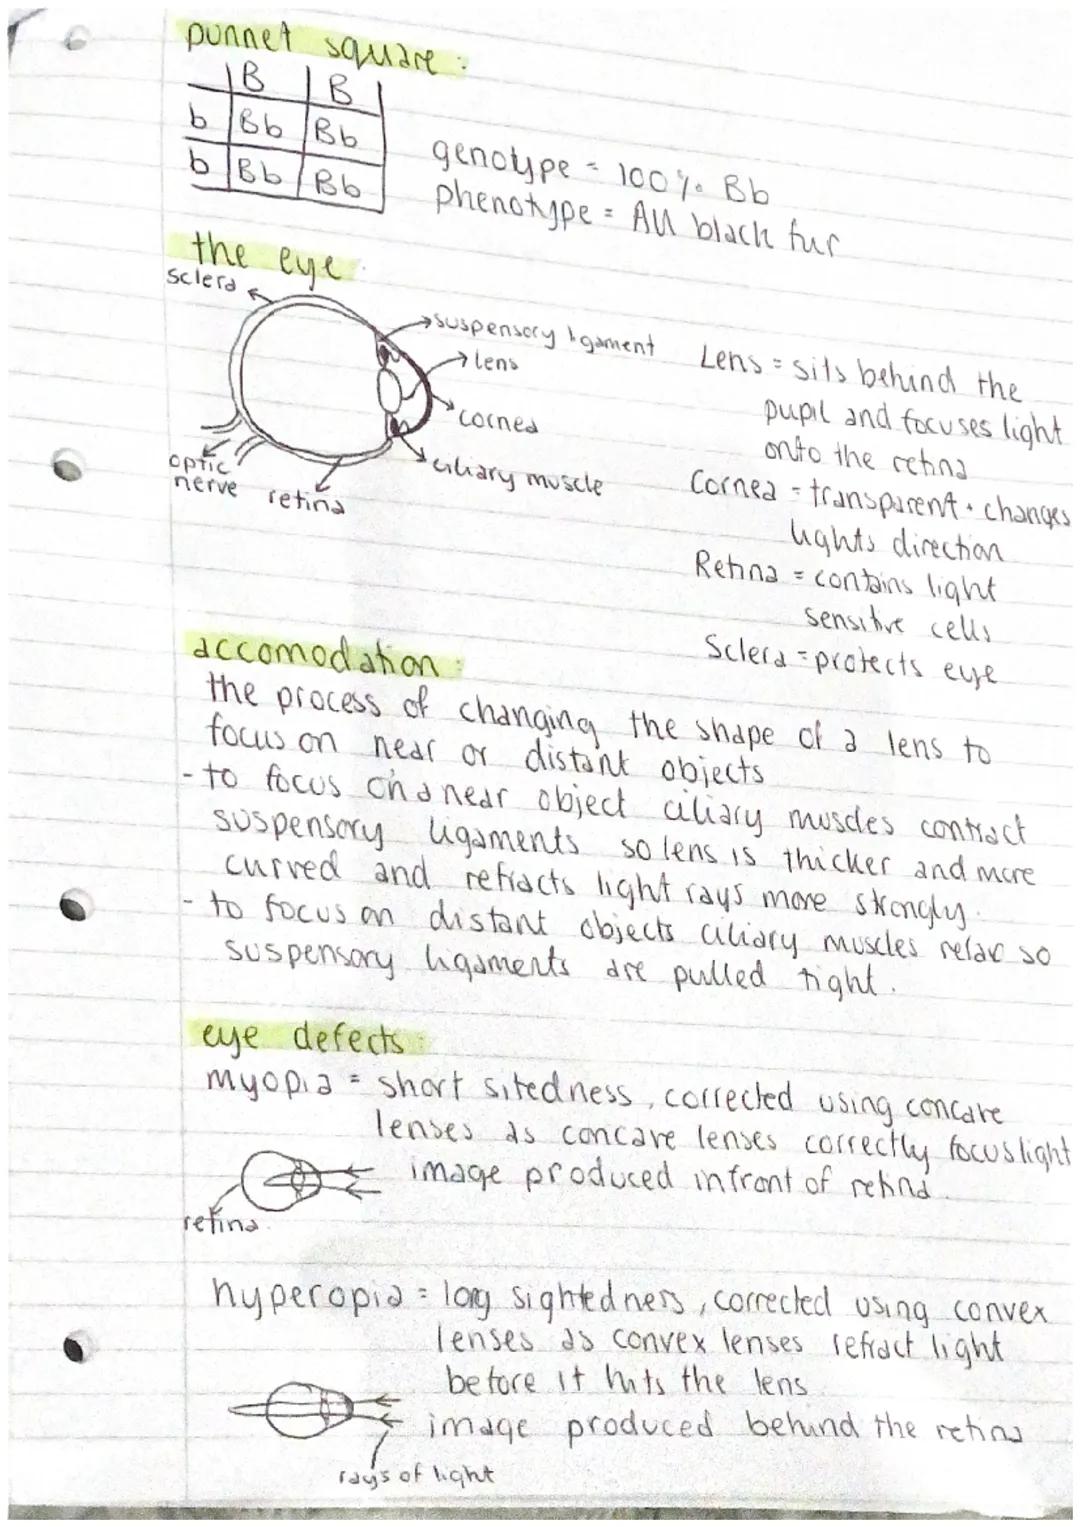 punnet square:
B B
b Bb Bb
b Bb Bb
genotype = 100% Bb
phenotype = All black fur
the eye:
sclera
suspensory ligament
lens
cornea
ciliary muscle
optic
nerve
retina
Lens = sits behind the
pupil and focuses light
onto the retina
Cornea = transparent + changes
lights direction
Retina = contains light
sensitive cells
Sclera = protects eye
accomodation:
the process of changing the shape of a lens to
focus on near or distant objects
- to focus on a near object ciliary muscles contract
suspensory ligaments so lens is thicker and more
curved and refracts light rays more strongly.
- to focus on distant objects ciliary muscles relax so
suspensory ligaments are pulled tight.
eye defects:
myopia = short sitedness, corrected using concave
lenses as concave lenses correctly focus light
image produced infront of retina.
retina
hyperopia = long sightedness, corrected using convex
lenses as convex lenses refract light
before it hits the lens
image produced behind the retina
rays of light